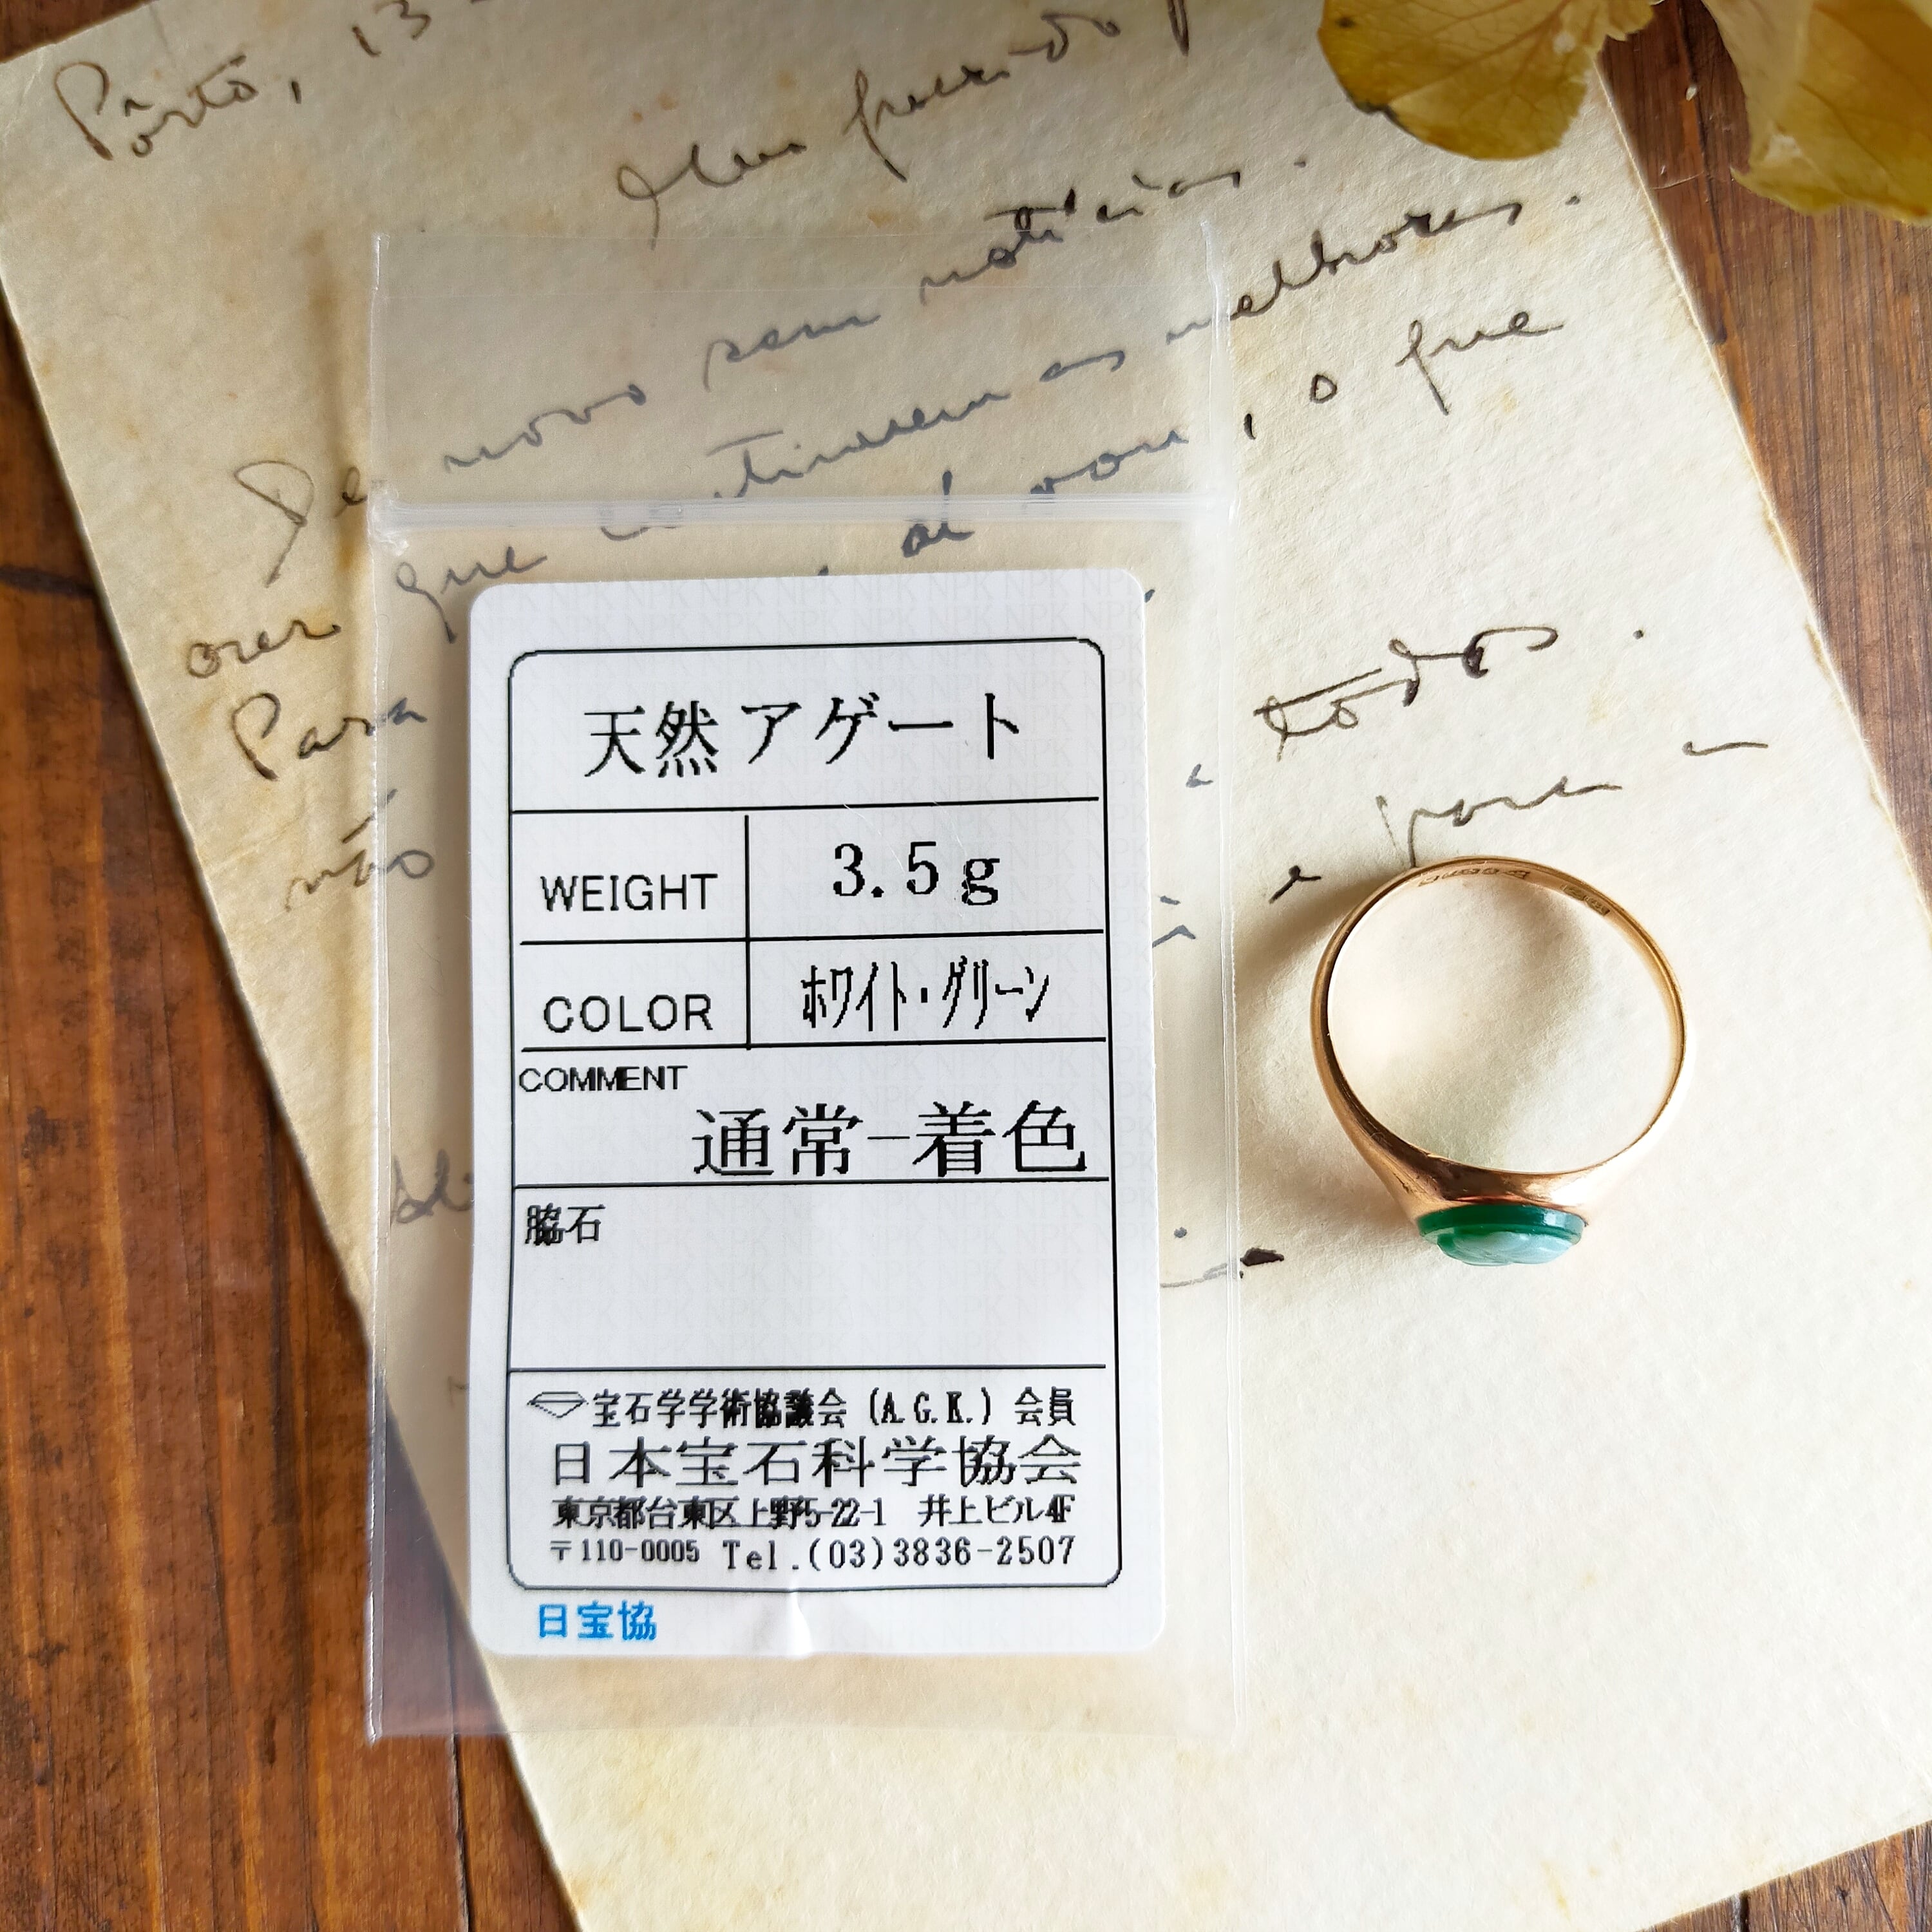 Pôrto, 13
Meu querido
De novo sem notícias.
que continuem as melhoras.
orar al vou, o que
Para todos.
não e para
天然アゲート
WEIGHT 3.5g
COLOR ホワイト・グリーン
COMMENT
通常-着色
脇石
宝石学学術協議会(A.G.K.)会員
日本宝石科学協会
東京都台東区上野5-22-1 井上ビル4F
〒110-0005 Tel.(03)3836-2507
日宝協